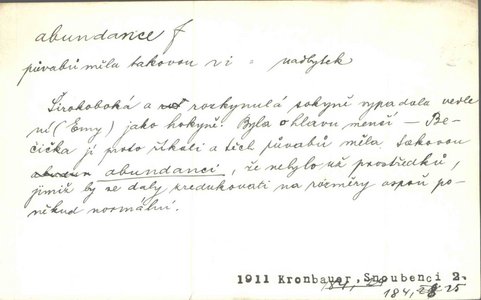 abundance f
půvabů měla takovou = nadbytek
Širokoboká a rozkynulá sokyně vypadala vedle
ní (Emy) jako hokyně. Byla o hlavu menší — Be-
čička jí proto říkali a těch půvabů měla takovou
abundanci, že nebylo už prostředků,
jimiž by se daly zredukovati na rozměry aspoň po-
někud normální.
1911 Kronbauer, Snoubenci 2.
184, 25